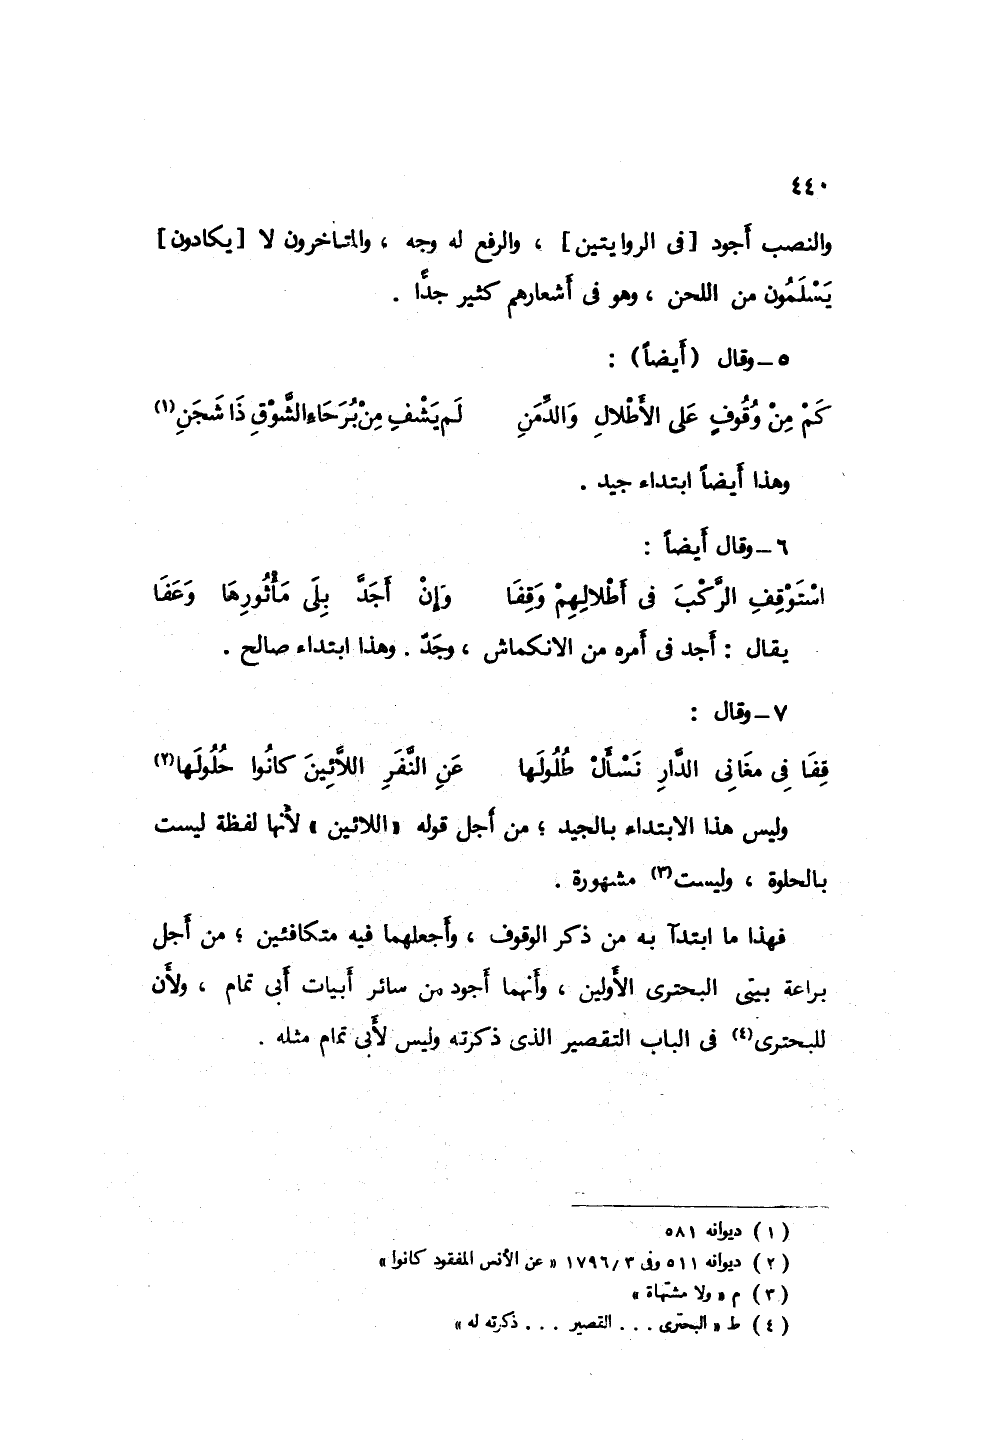 ٤٤٠
والنصب أَجود [ فى الروايتين ] ، والرفع له وجه ، والمتأخرون لا [ يكادون ]
يَسْلَمُون من اللحن ، وهو فى أَشعارهم كثير جدًّا .
٥ – وقال ( أَيضاً ) :
كَمْ مِنْ وُقُوفٍ عَلى الأَطْلالِ وَالدِّمَنِ لَم يَشْفِ مِنْ بُرَحَاءِ الشَّوْقِ ذَا شَجَنِ(١)
وهذا أَيضاً ابتداء جيد .
٦ – وقال أَيضاً :
اسْتَوْقِفِ الرَّكْبَ فى أَطْلالِهِمْ وَقِفَا وَإِنْ أَجَدَّ بِلَى مَأْثُورِهَا وَعَفَا
يقال : أَجد فى أَمره من الانكماش ، وجَدّ . وهذا ابتداء صالح .
٧ – وقال :
قِفَا فِى مغَانِى الدَّارِ نَسْأَلْ طُلُولَها عَنِ النَّفَرِ اللاَّئِينَ كانُوا حُلُولَها(٢)
وليس هذا الابتداء بالجيد ؛ من أَجل قوله « اللائين » لأَنها لفظة ليست
بالحلوة ، وليست(٣) مشهورة .
فهذا ما ابتدآ به من ذكر الوقوف ، وأَجعلهما فيه متكافئين ؛ من أَجل
براعة بيتى البحترى الأَولين ، وأَنهما أَجود من سائر أَبيات أَبى تمام ، ولأَن
للبحترى(٤) فى الباب التقصير الذى ذكرته وليس لأَبى تمام مثله .
( ١ ) ديوانه ٥٨١
( ٢ ) ديوانه ٥١١ وفى ٣/١٧٩٦ « عن الأنس المفقود كانوا »
( ٣ ) م « ولا مشتهاة »
( ٤ ) ط « البحترى . . . القصير . . . ذكرته له »